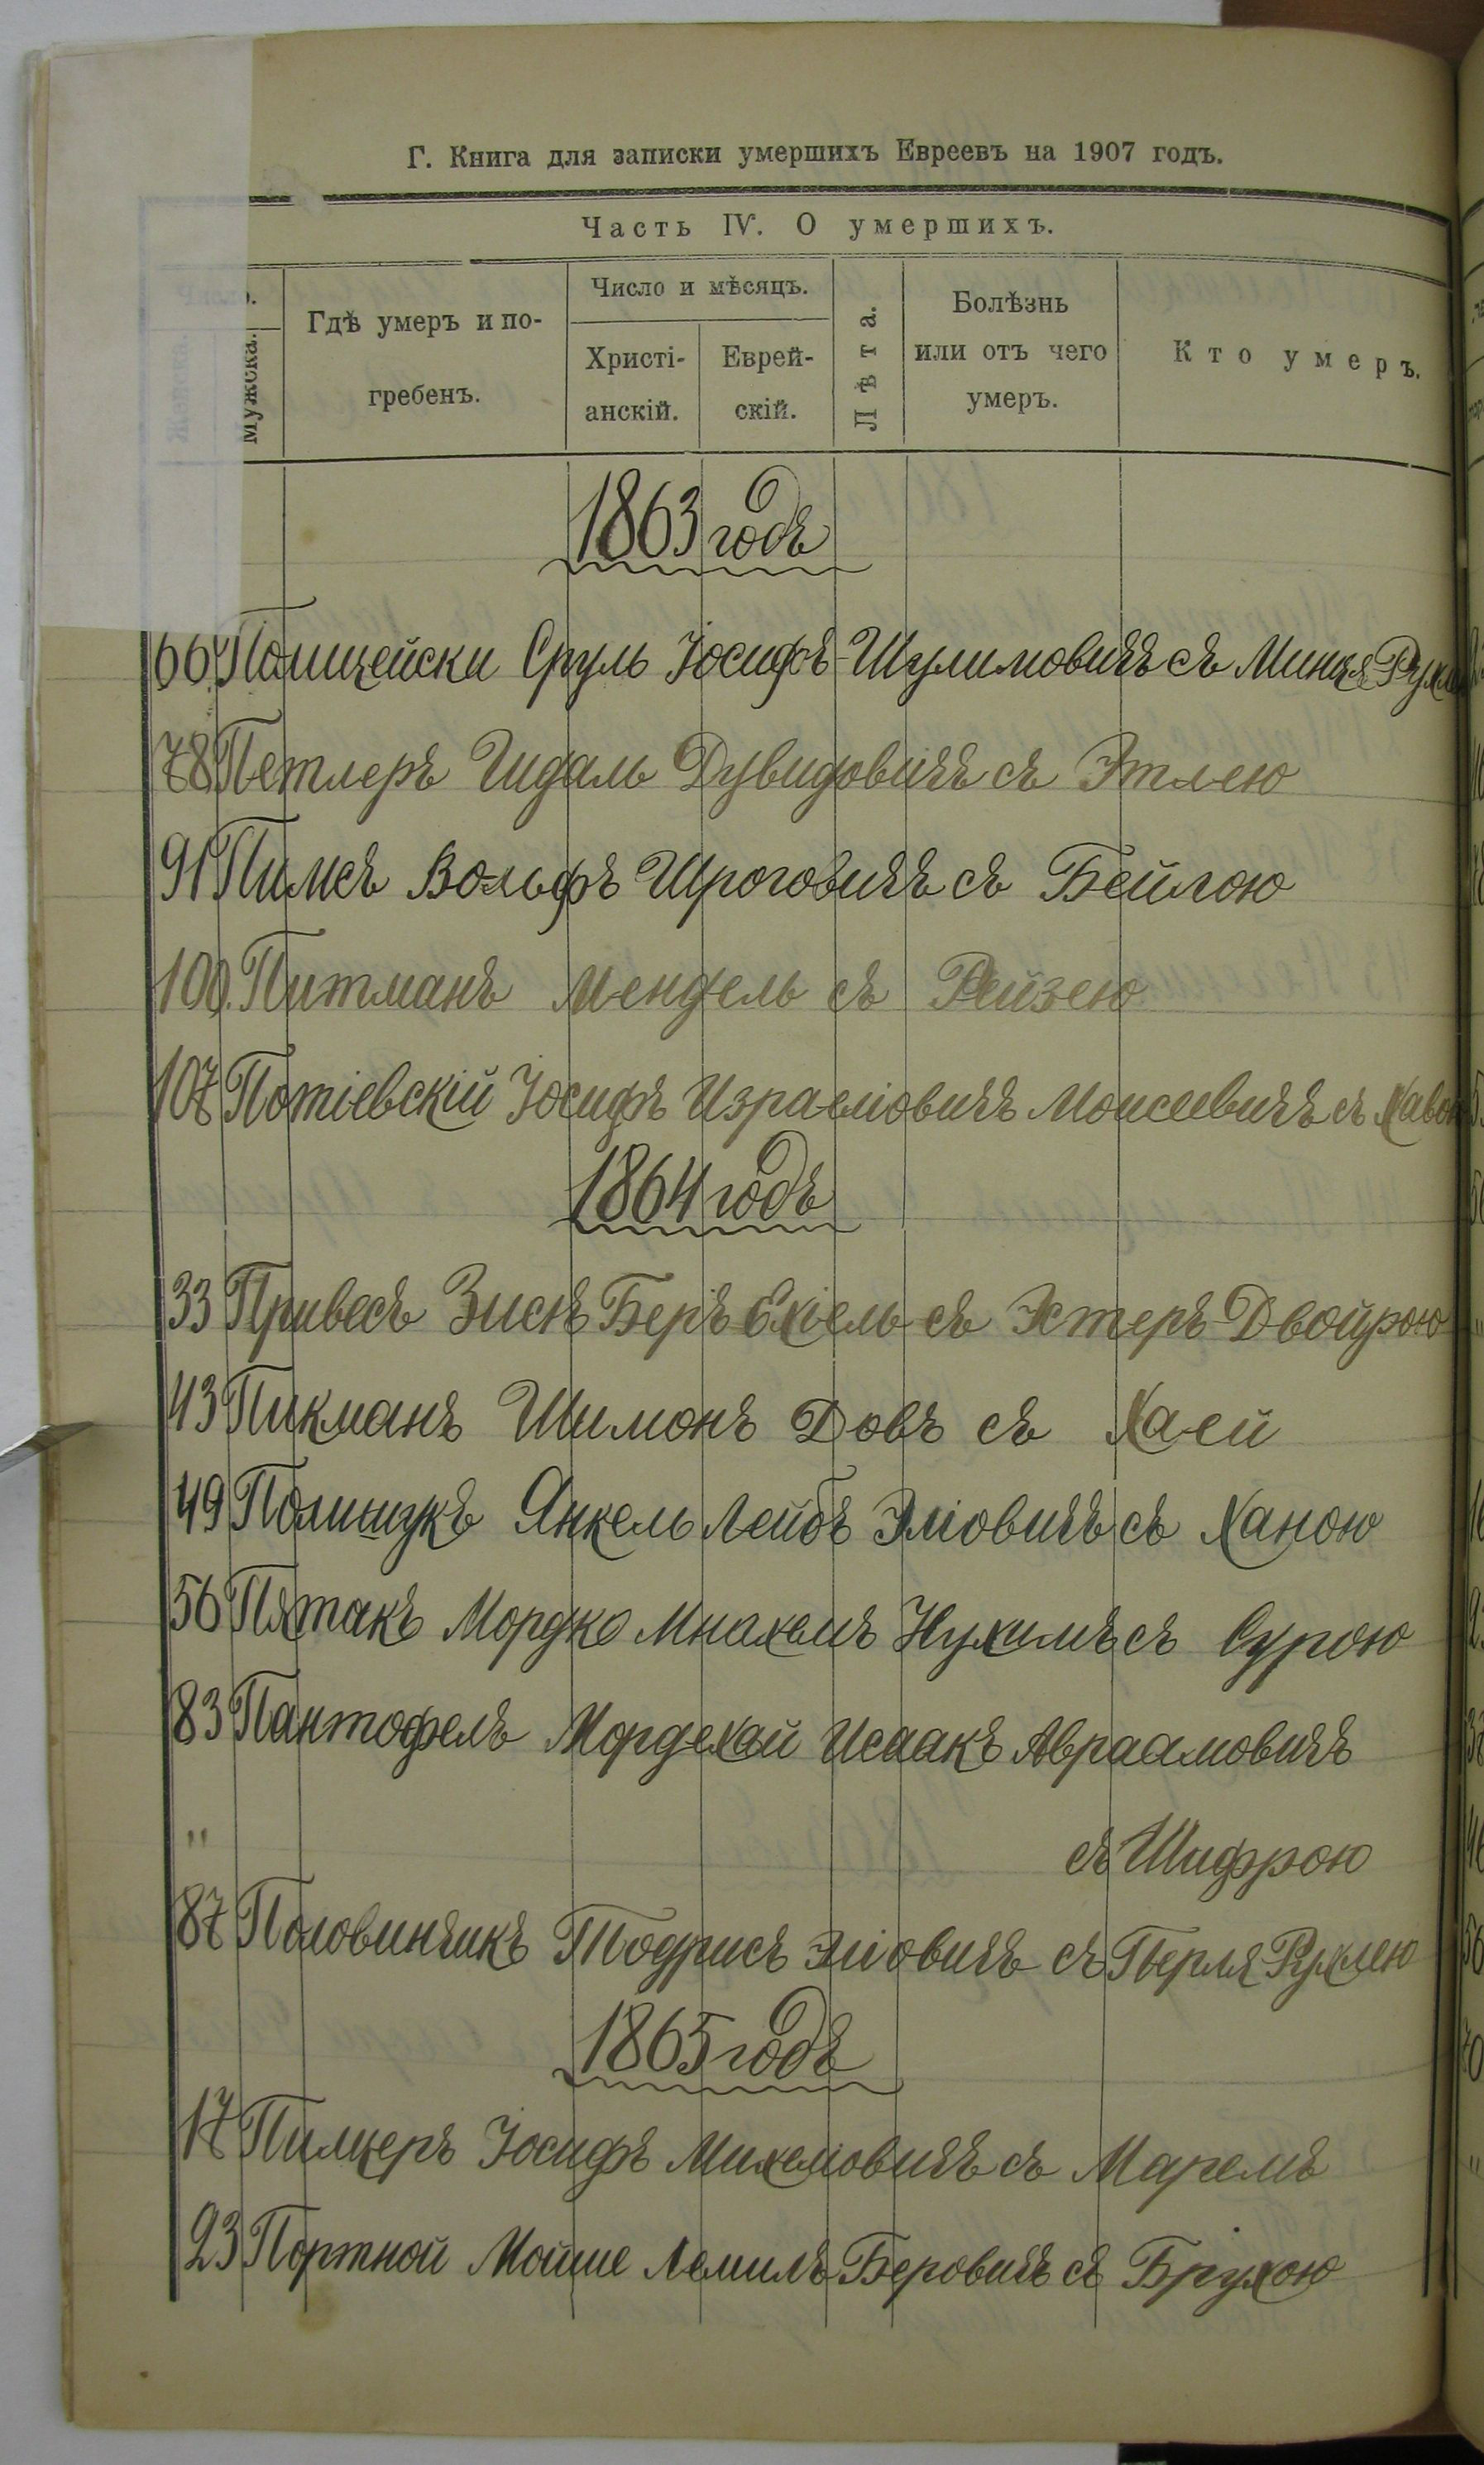 Г. Книга для записки умершихъ Евреевъ на 1907 годъ.
Часть IV. О умершихъ.
Мужска.
Гдѣ умеръ и по-
гребенъ.
Число и мѣсяцъ.
Христі-
анскій.
Еврей-
скій.
Лѣта.
Болѣзнь
или отъ чего
умеръ.
Кто умеръ.
1863 годъ
66 Полицейски Сруль Іосифъ Шулимовичъ съ Минця
78 Петлеръ Гидаль Дувидовичъ съ Этлею
91 Пилсъ Вольфъ съ Бейлою
100. Питманъ Мендель съ Рейзею
107 Потіевскій Іосифъ Израеліовичъ Моисеевичъ съ
1864 годъ
33 Привесъ Зисъ Беръ Ехіель съ Эстеръ Двойрою
43 Пикманъ Шимонъ Довъ съ Хаей
49 Полищукъ Янкель Лейбъ Эліовичъ съ Ханою
56 Пятакъ Мордко Мнахемъ Нухимъ съ Сурою
83 Пантофелъ Мордехай Исаакъ Авраамовичъ
" съ Шифрою
87 Половинчикъ Тодрисъ Эліовичъ съ Перля Рухлею
1865 годъ
17 Пилцеръ Іосифъ Михеліовичъ съ Маремъ
23 Портной Мойше Лемилъ Беровичъ съ Брухою